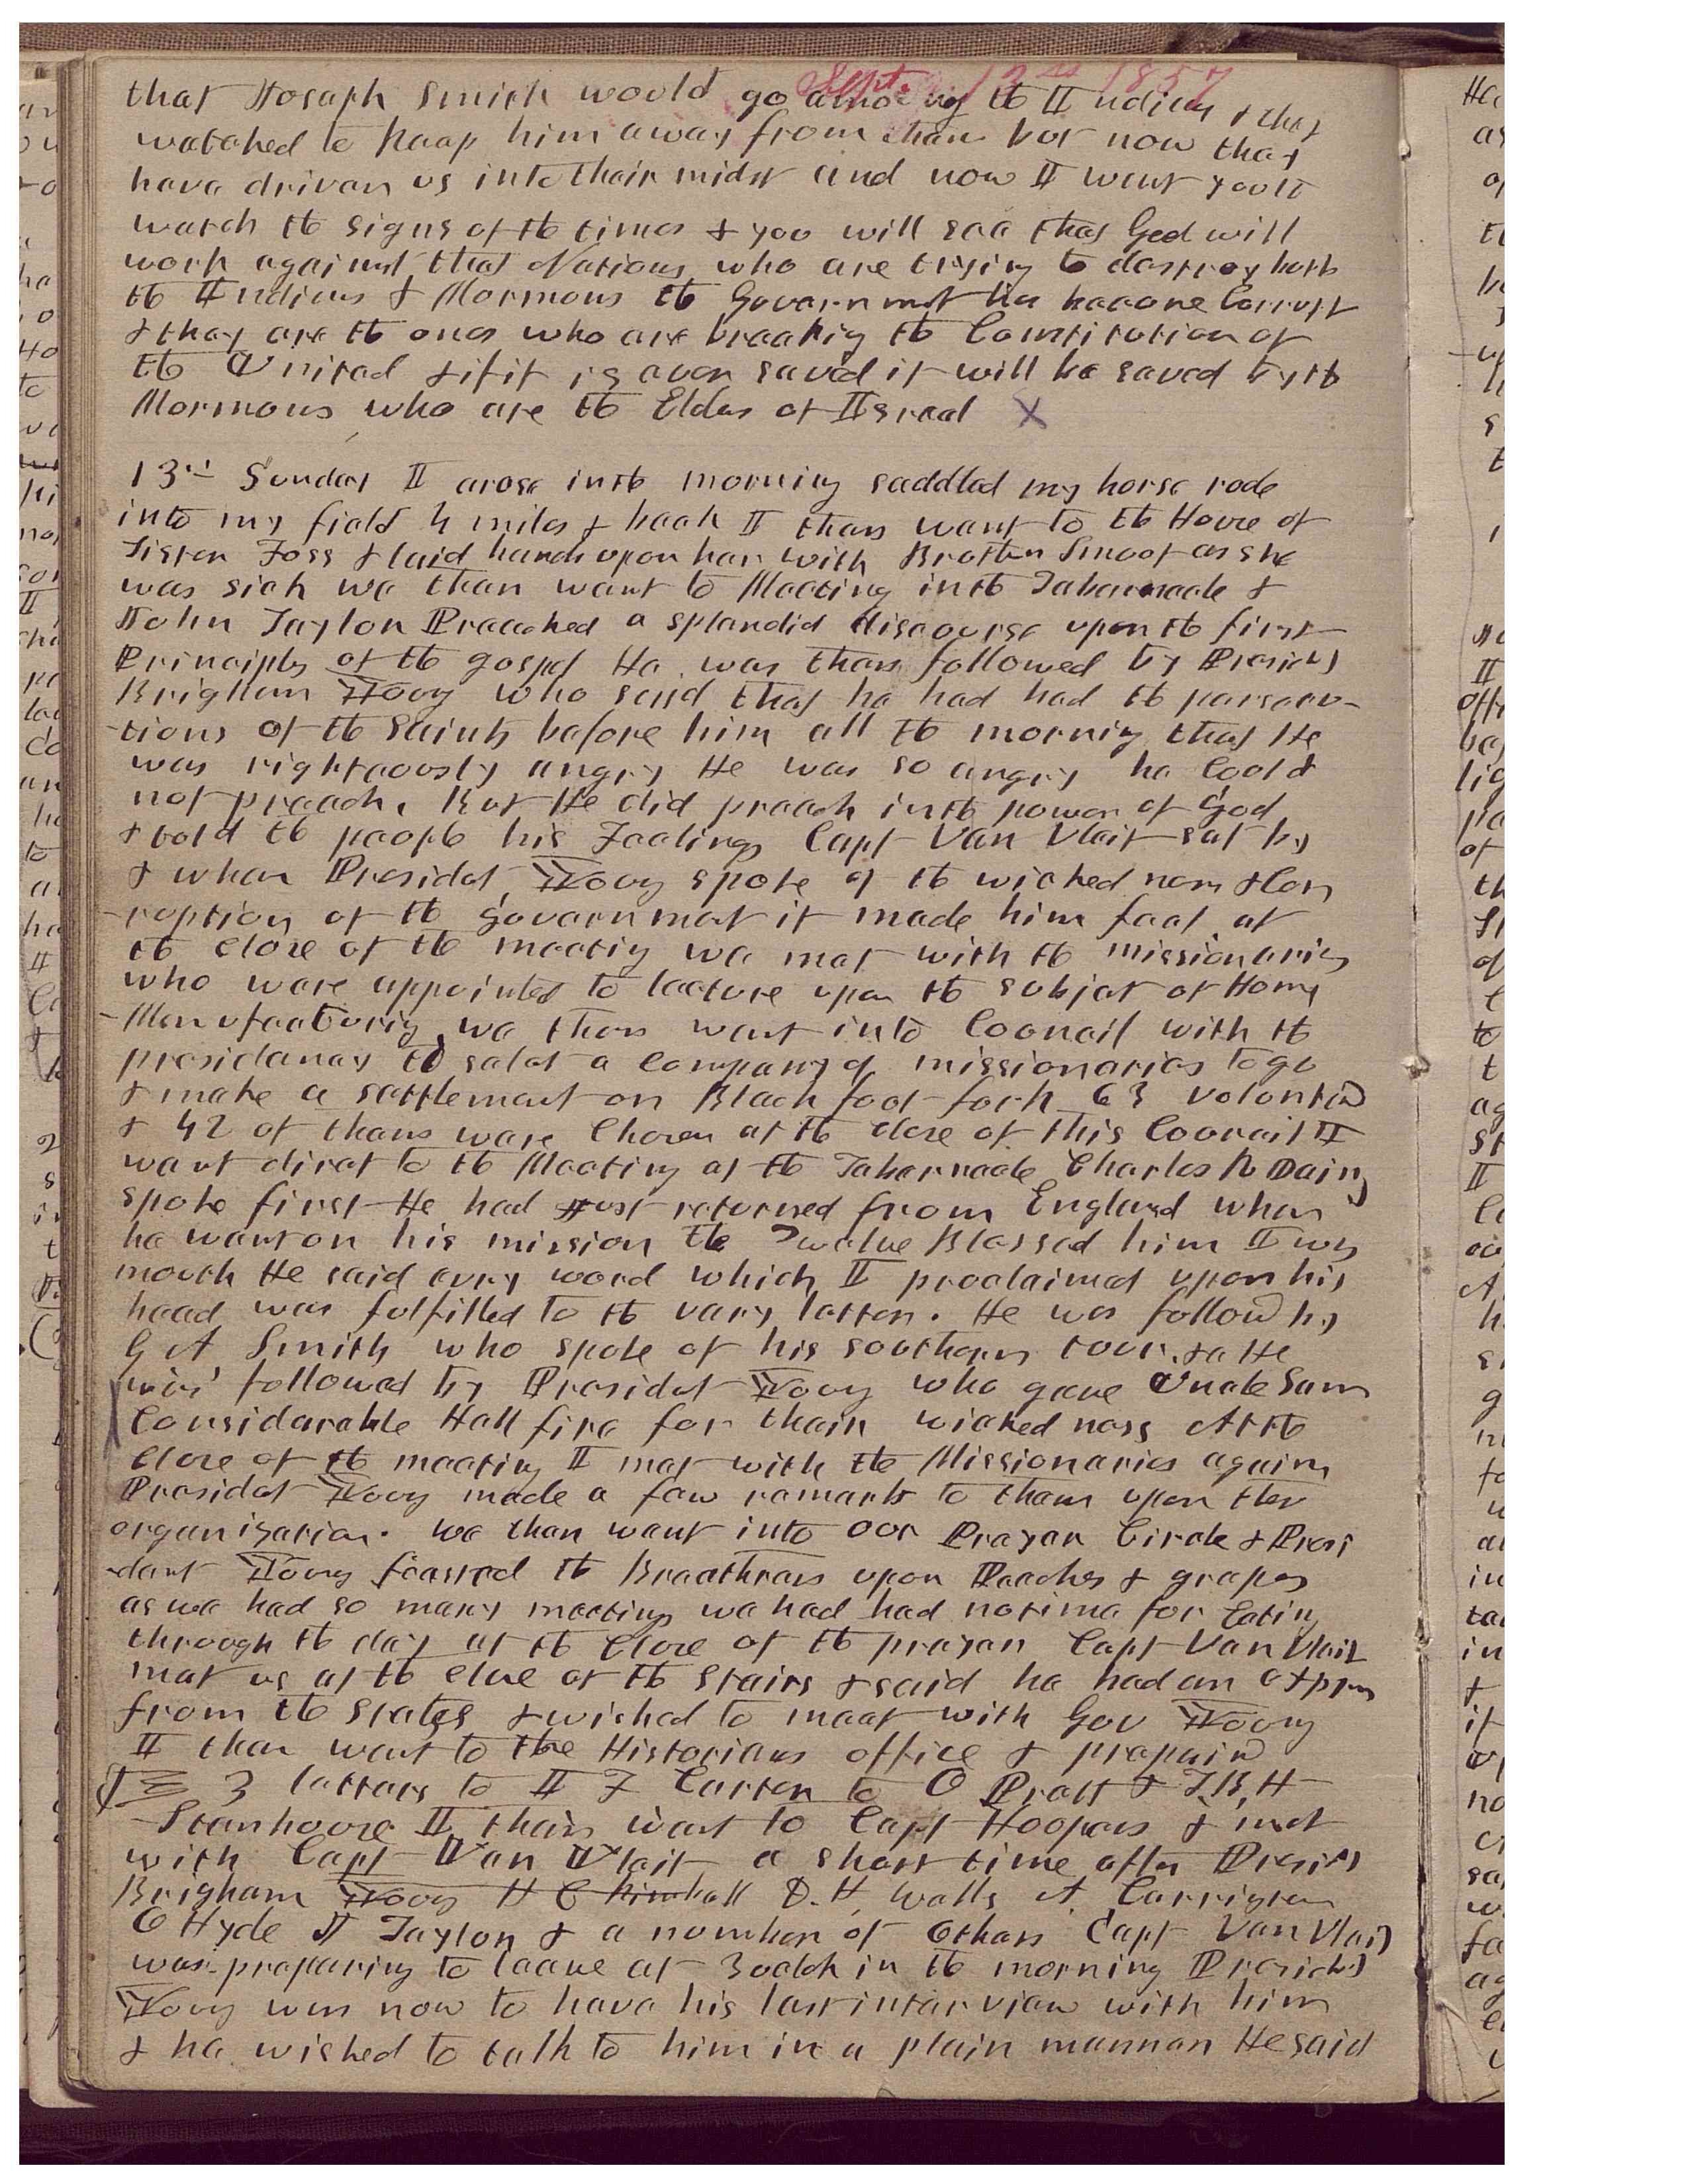 Sept. 13th 1857
that Joseph Smith would go among the Indians & they
watched to keep him away from them but now they
have driven us into their midst and now I want you to
watch the signs of the times & you will see that God will
work against that Nations who are trying to destroy both
the Indians & Mormons the Governmet has become Corrupt
& they are the ones who are breaking the Constitution of
the United & if it is ever saved it will be saved by the
Mormons who are the Elders of Israel X
13th Sunday I arose in the morning saddled my horse rode
into my field 4 miles & back I then went to the House of
Sister Foss & laid hands upon her with Brother Smoot as she
was sick we then went to Meeting in the Tabernacle &
John Taylor Preached a splendid discourse upon the first
Principles of the gospel He was then followed by Presidet
Brigham Young who said that he had had the persecu-
-tions of the Saints before him all the morning that He
was righteously angry He was so angry he Could
not preach. But He did preach in the power of God
& told the people his Feelings Capt Van Vleit sat by
& when Presidet Young spoke of the wickedness & Cor
-ruption of the government it made him feel. at
the close of the meeting we met with the missionaries
who were appointed to lecture upon the subject of Home
-Manufacturig we then went into Council with the
presidency to selet a Company of missionaries to go
& make a settlement on Black foot fork 63 volunteed
& 42 of them were Chosen at the close of this Councail I
went diret to the Meeting at the Tabernacle Charles R Dain
spoke first He had just returned from England when
he went on his mission the Twelve Blessed him I was
mouth He said evry word which I proclaimed upon his
head was fulfilled to the vary letter. He was followd by
G A Smith who spoke of his southern tour. He
was followed by Presidet Young who gave Uncle Sam
Considerable Hell fire for their wickedness At the
close of the meeting I met with the Missionaries again
Presidet Young made a few remarks to them upon ther
organization. we then went into our Prayer Circle & Presi
-dent Young feasted the Breethren upon Peaches & grapes
as we had so many meetings we had had no time for Eating
through the day at the Close of the prayer Capt Van Vleit
met us at the close of the Stairs & said he had an express
from the States & wished to meet with Gov Young
I then went to the Historians office & prepaird
3 letters to I F Carter to O Pratt & T. B. H
Stenhouse I then went to Capt Hoopers & met
with Capt Van Vleit a short time after Presidet
Brigham Young H C Kimball D. H. Wells A. Carrigten
O Hyde J Taylor & a number of others Capt Van Vleit
was preparing to leave at 3 oclok in the morning Presidet
Young was now to have his last interview with him
& he wished to talk to him in a plain manner He said